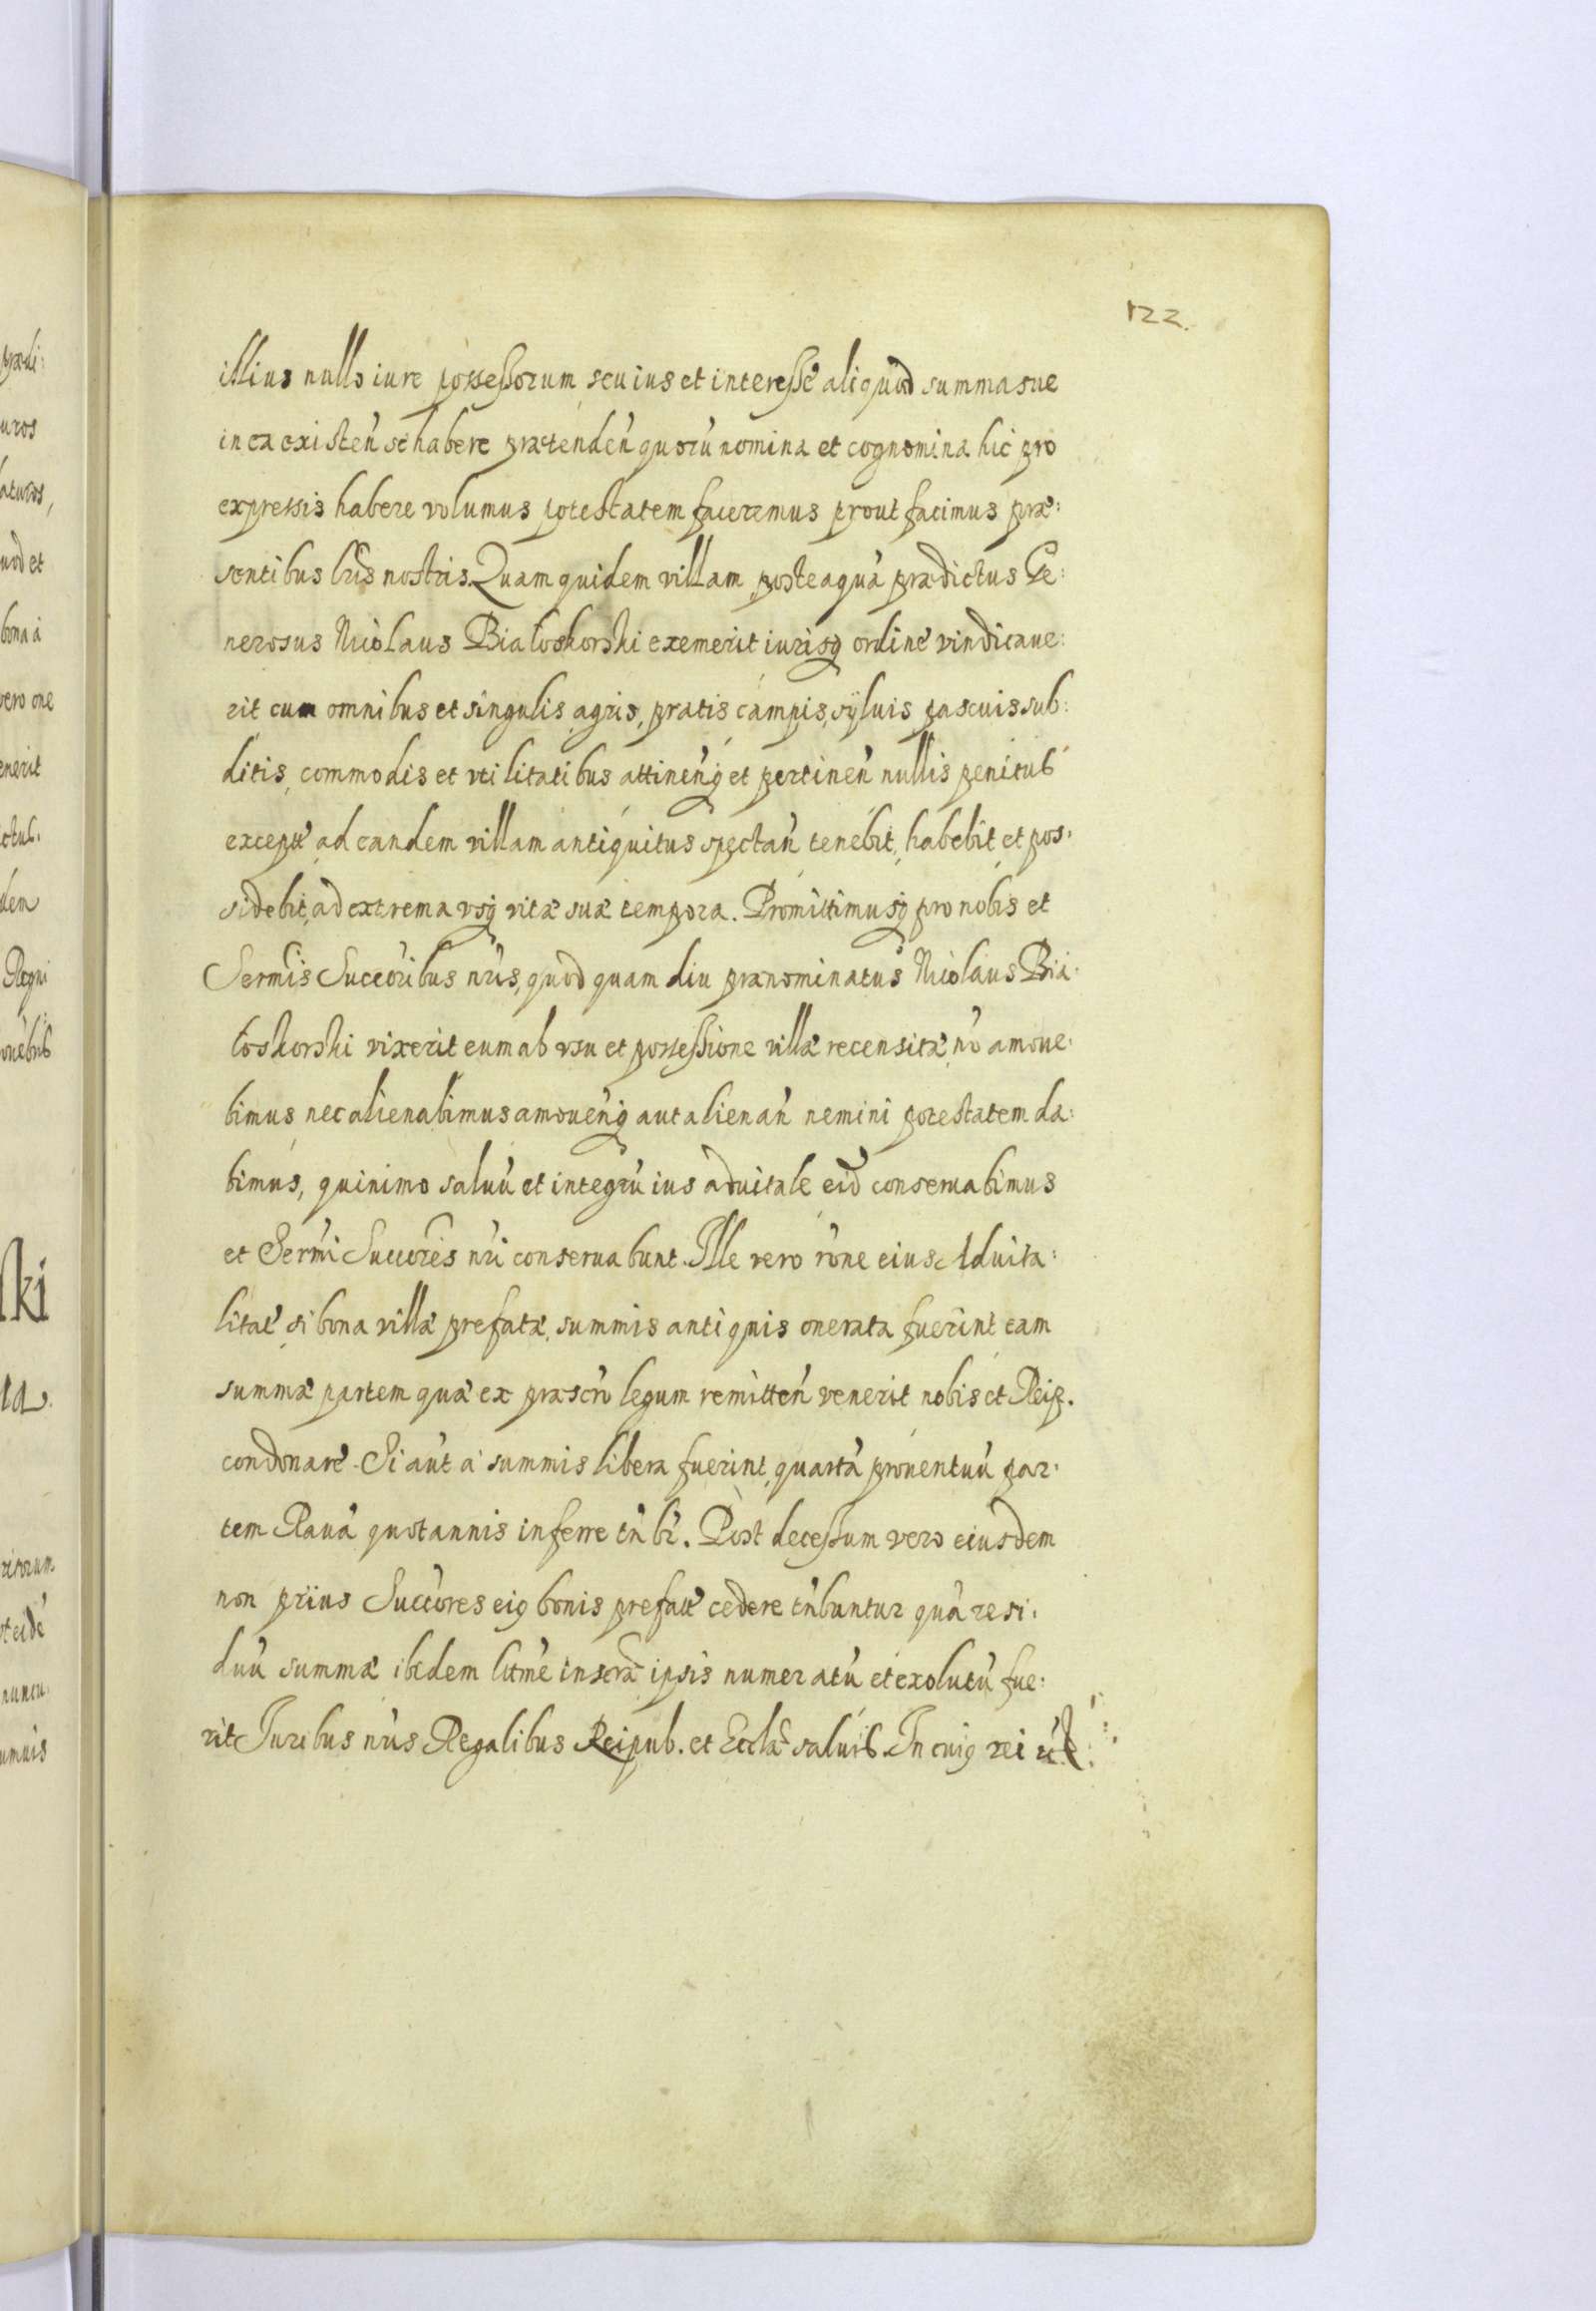 122.
illius nullo iure possessorum, seu ius et interesse aliquod summasue
in ea existeń se habere prætendeń quorū nomina et cognomina hic pro
expressis habere volumus potestatem faceremus prout facimus præ:
sentibus lris nostris. Quam quidem villam, posteaquā prædictus Ge:
nerosus Nicolaus Białoskorski exemerit iurisq ordine vindicaue:
rit cum omnibus et singulis agris, pratis campis, syluis pascuis sub:
ditis, commodis et vtilitatibus attineńq et pertineń nullis penitus
except ad eandem villam antiquitus spectań tenebit, habebit et pos:
sidebit, ad extrema vsq vitæ suæ tempora. Promittimusq pro nobis et
Sermis Succoribus nris, quod quam diu prænominatus Nicolaus Bia:
łoskorski vixerit eum ab vsu et possessione villæ recensitæ nō amoue:
bimus nec alienabimus amoueńq aut alienań nemini potestatem da:
bimus, quinimo saluū et integrū ius aduitale eid conseruabimus
et Sermi Succores nri conseruabunt. Ille vero rōne eius Aduita:
litat si bona villæ prefatæ summis antiquis onerata fuerint eam
summæ partem quæ ex præscro legum remitteń venerit nobis et Reip.
condonare. Si aūt a summis libera fuerint, quartā prouentuū par:
tem Rauā quotannis inferre tnbr. Post decessum vero eiusdem
non prius Succores eiq bonis prefat cedere tnbuntur quā resi:
duū summæ ibedem litme inscræ ipsis numeratū et exolutū fue:
rit Iuribus nris Regalibus Reipub. et Ecclæ saluis. In cuiq rei
præli:
uros
aturos,
uod et
bona a
vero one
enerit
ctus.
den
Regni
onebus
ski
ia.
ritorum
nuncu
umuis